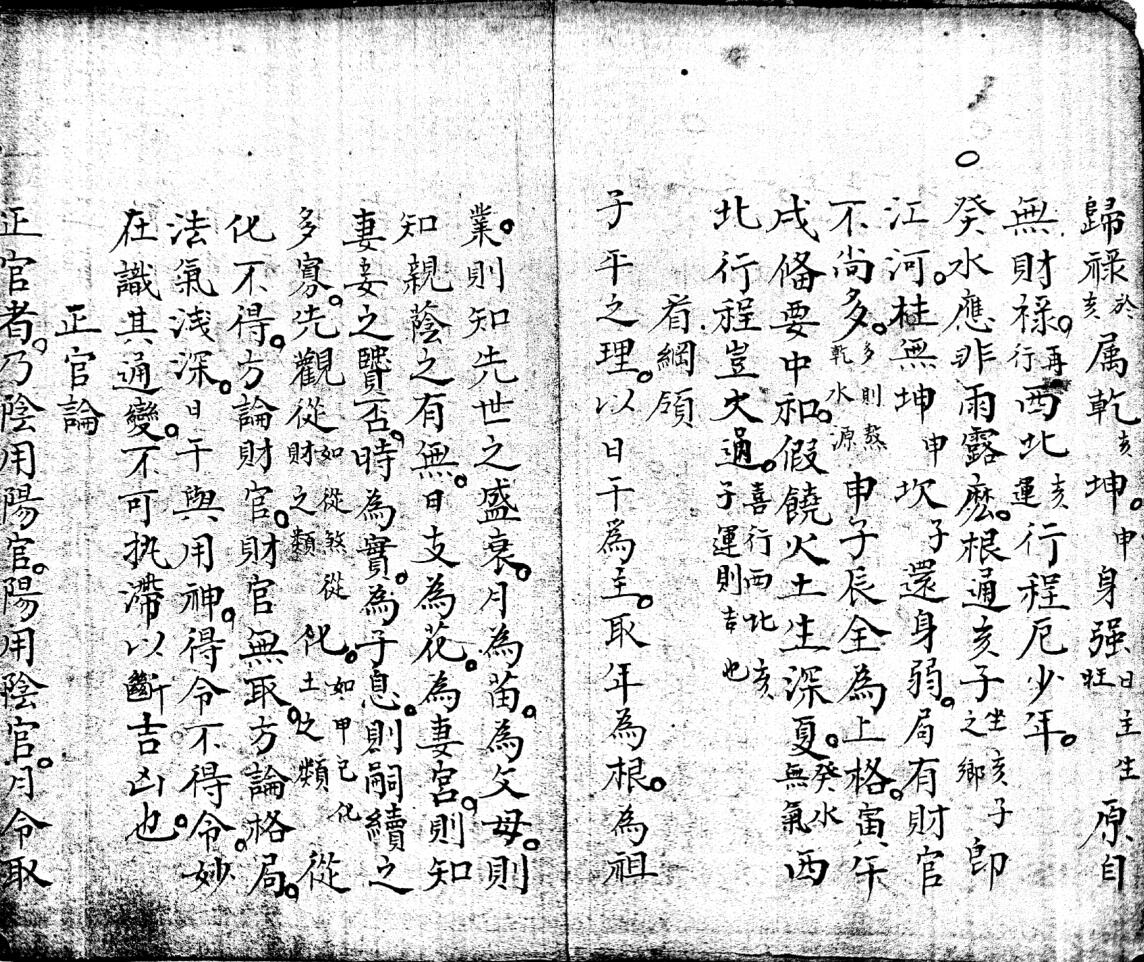 歸祿於亥属乾亥坤。申身强日主生旺原自
無財祿。再行西北亥運行程厄少年。
○癸水應非雨露麽。根通亥子坐亥子之鄉即
江河。柱無坤申坎子還身弱。局有財官
不尚多。多則熬乾水源申子辰全為上格。寅午
戌俻要中和。假饒火土生深夏。癸水無氣西
北行程豈大過。喜行西北亥子運則吉也
看綱領
子平之理。以日干為主。取年為根。為祖
業。則知先世之盛衰。月為苗。為父母。則
知親蔭之有無。日支為花。為妻宮。則知
妻妾之賢否。時為實。為子息。則嗣續之
多寡。先觀從如從煞從財之類化。如甲己化土之類從
化不得。方論財官。財官無取。方論格局。
法氣浅深。日干與用神。得令不得令。妙
在識其通變。不可执滯以斷吉凶也。
正官論
正官者。乃陰用陽官。陽用陰官。月令取